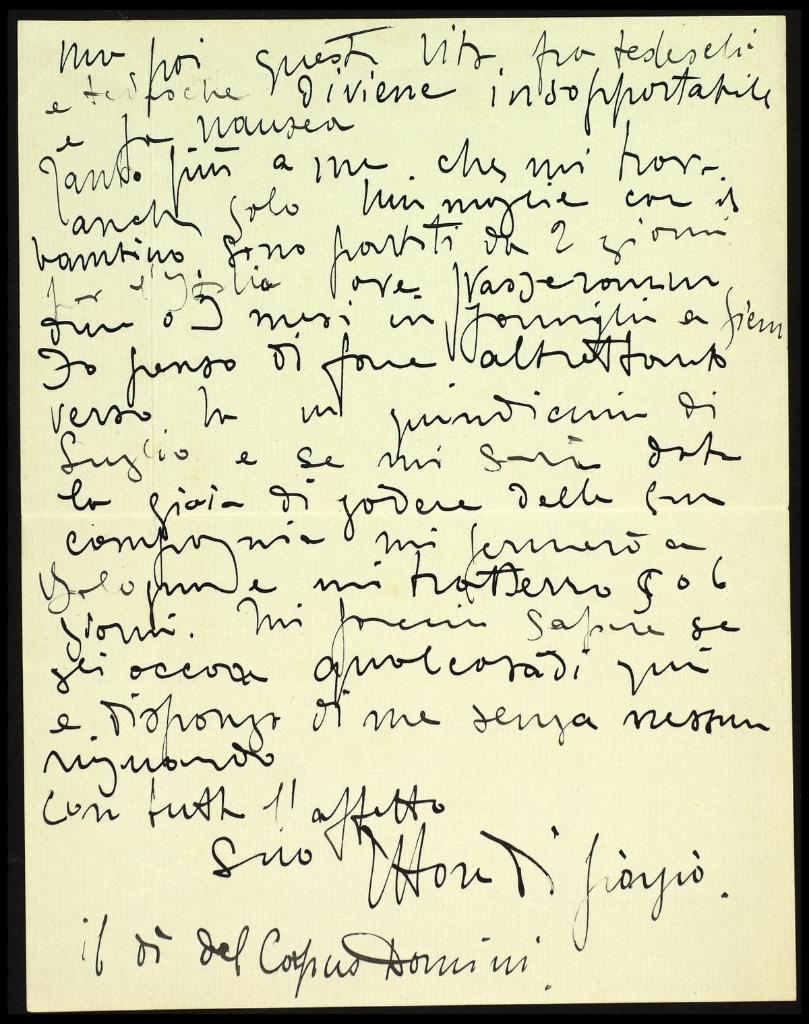 ma poi questa vita fra tedeschi
e tedesche diviene insopportabile
e fa nausea
Tanto più a me che mi trovo
anche solo Mia moglie con il
bambino sono partiti da 2 giorni
per l'Italia ove passeranno
due o 3 mesi in famiglia a
Io penso di fare altrettanto
verso la quindicina di
Luglio e se mi sarà data
la gioia di godere della sua
compagnia mi fermerò a
Bologna e mi tratterrò 5 o 6
giorni. Mi faccia sapere se
gli occorre qualcosa di qui
e disponga di me senza nessun
riguardo
Con tutto l'affetto
Suo Ettore Di Giorgio.
il dì del Corpus Domini.